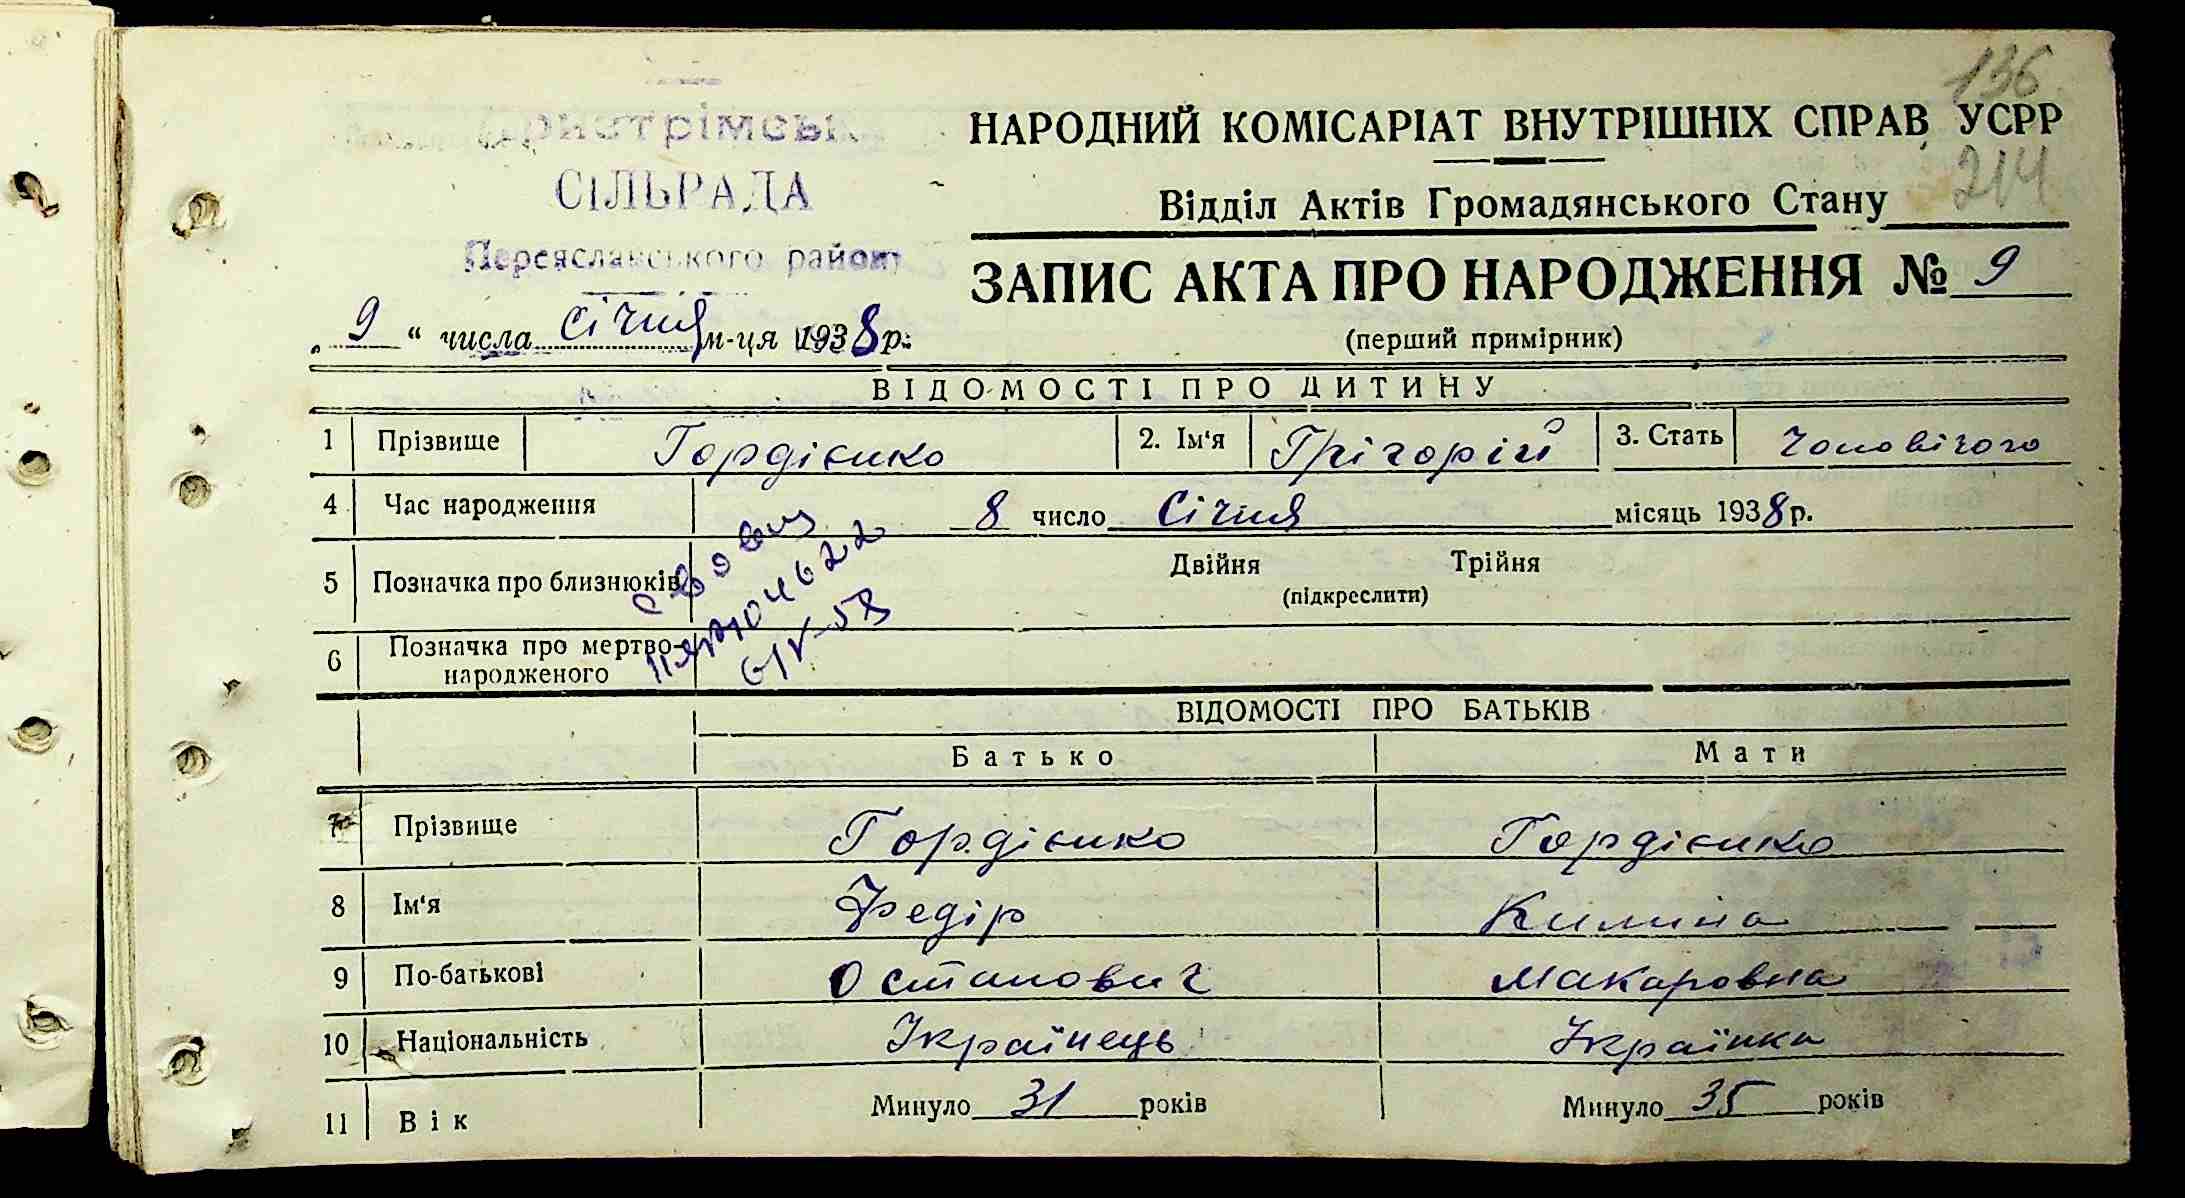 136
214
СІЛЬРАДА
Переяславського району
НАРОДНИЙ КОМІСАРІАТ ВНУТРІШНІХ СПРАВ УСРР
Відділ Актів Громадянського Стану
ЗАПИС АКТА ПРО НАРОДЖЕННЯ № 9
(перший примірник)
„ 9 “ числа січня м-ця 1938 р.
ВІДОМОСТІ ПРО ДИТИНУ
1 Прізвище Гордієнко 2. Ім‘я Грігорій 3. Стать Чоловічого
4 Час народження 8 число Січня місяць 1938 р.
5 Позначка про близнюків Двійня Трійня
(підкреслити)
6 Позначка про мертво-
народженого
ВІДОМОСТІ ПРО БАТЬКІВ
Батько Мати
7 Прізвище Гордієнко Гордієнко
8 Ім‘я Федір Килина
9 По-батькові Остапович Макаровна
10 Національність Українець Українка
11 Вік Минуло 31 років Минуло 35 років